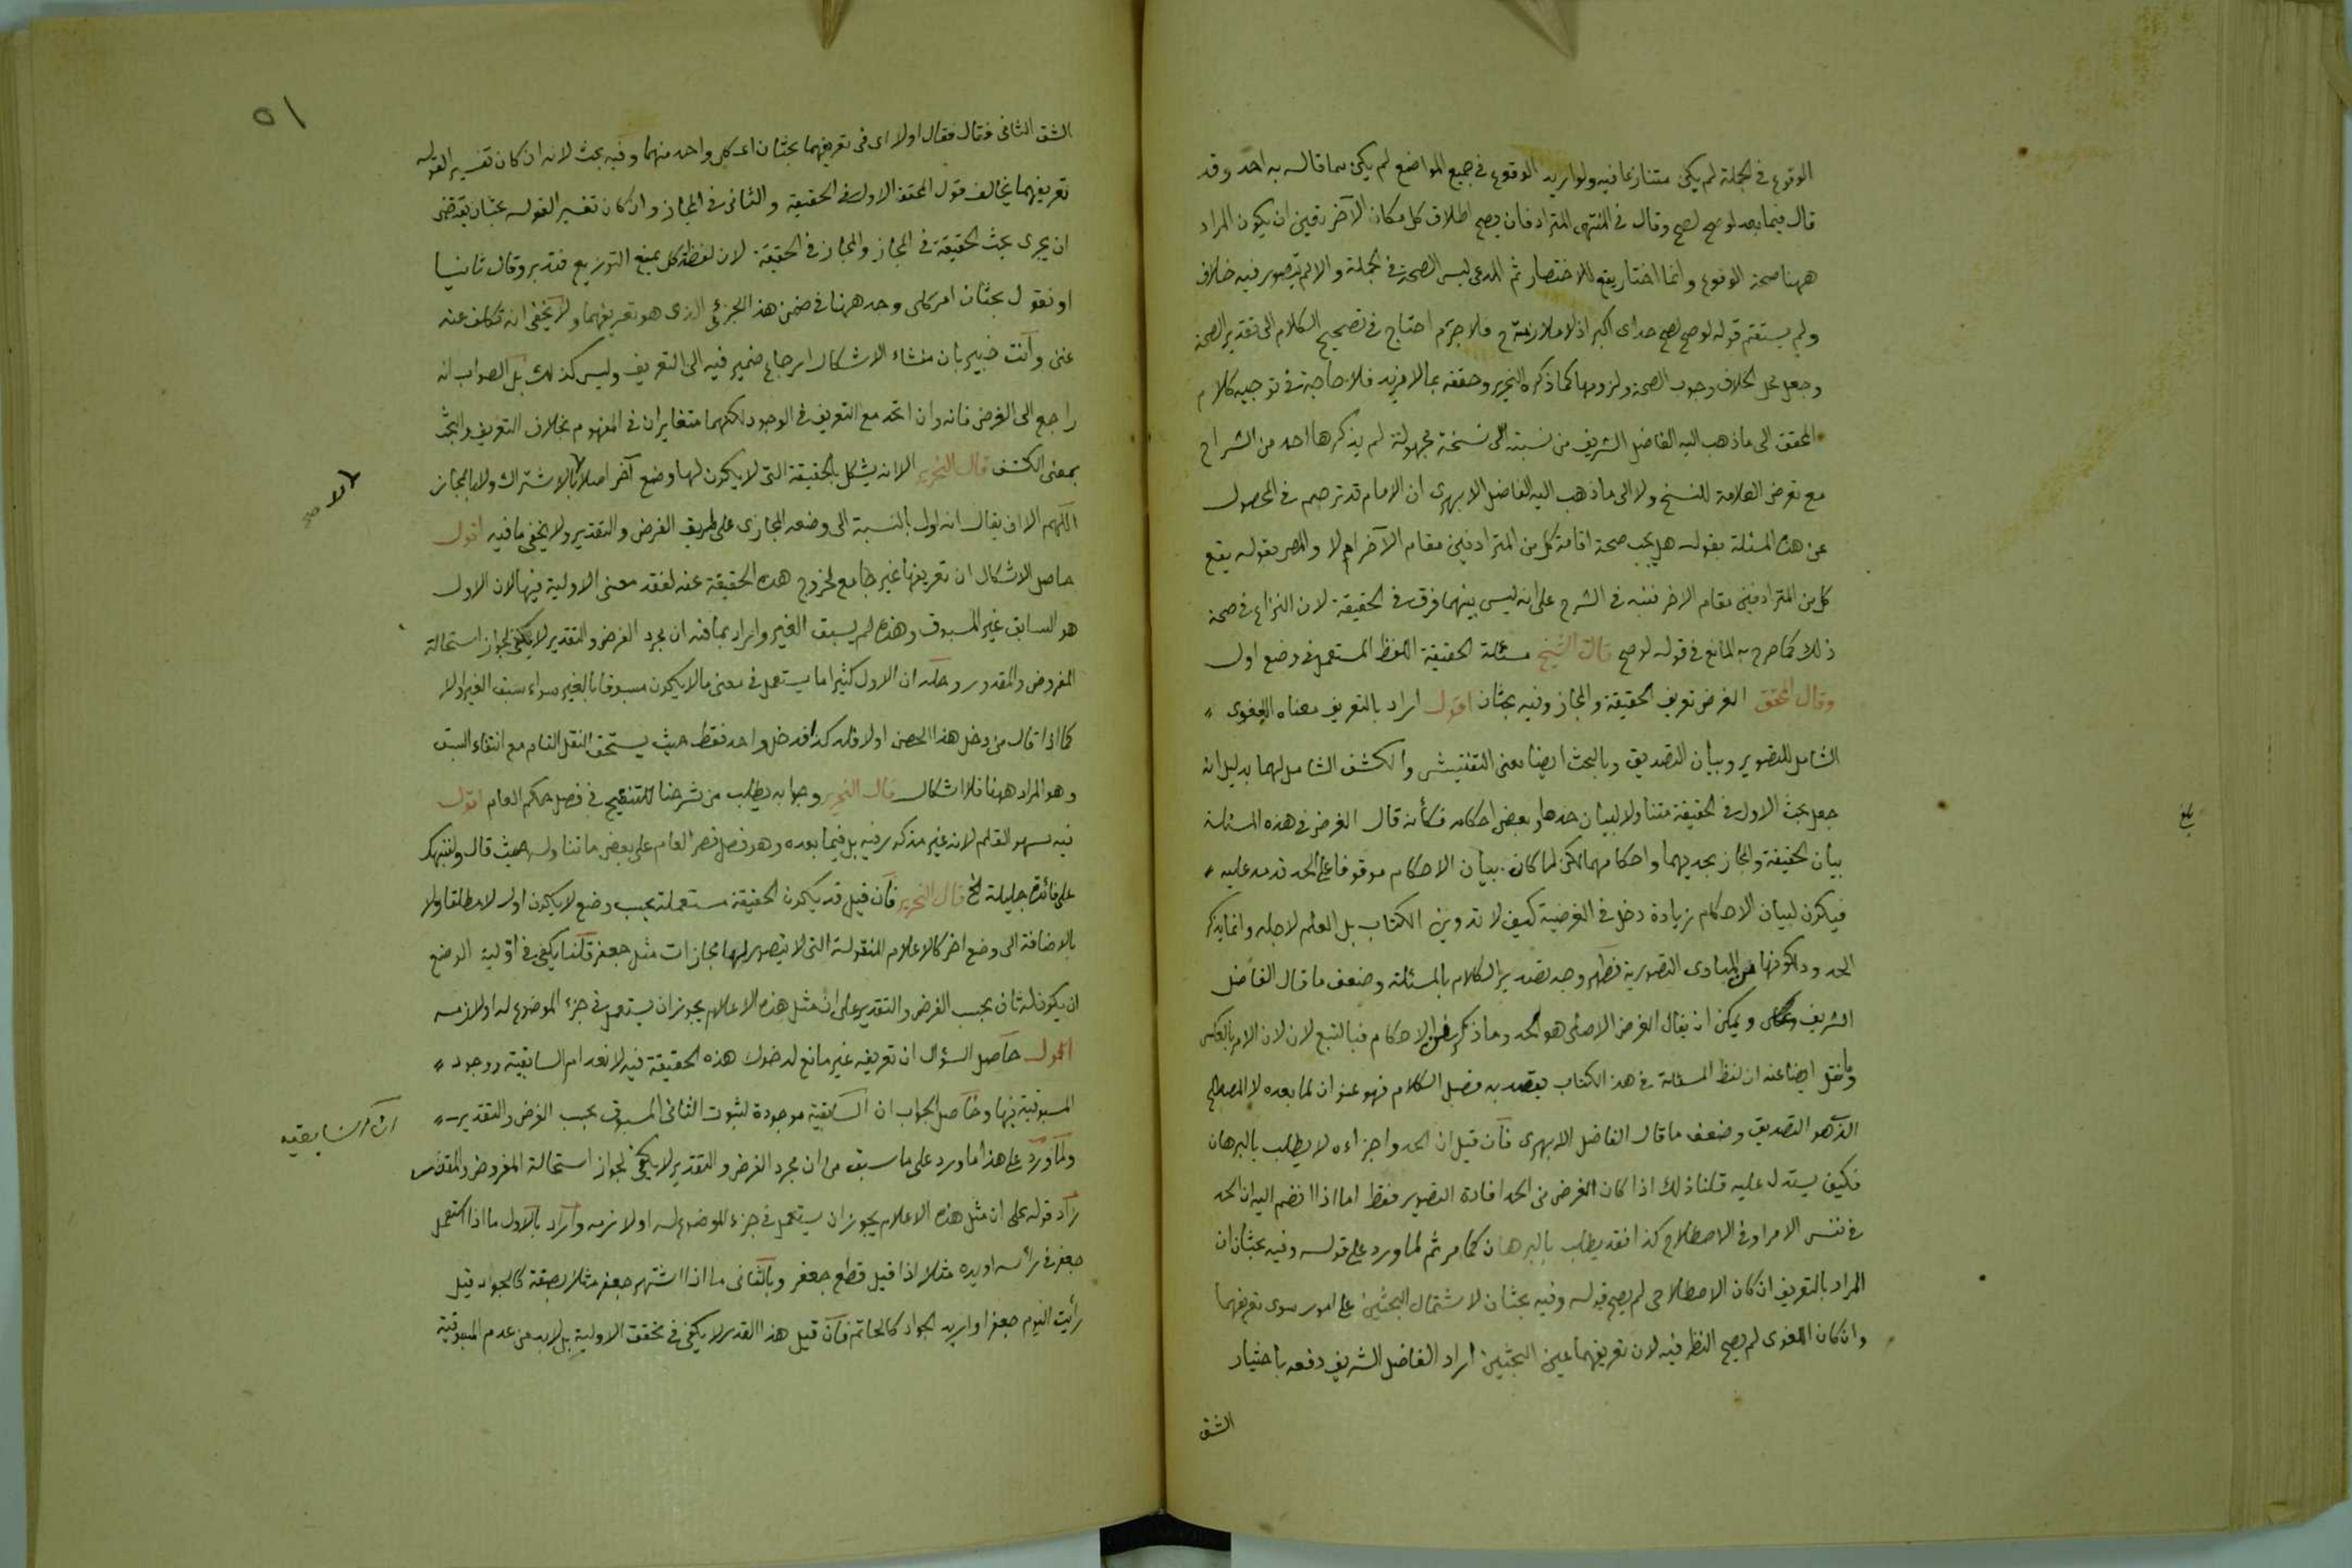 الوقوع في الجملة لم يكن متنازعا فيه ولو اريد الوقوع في جميع المواضع لم يكن مما قال به احد وقد
قال فيما بعد لو صح لصح وقال في المنتهى المترادفان يصح اطلاق كل مكان الآخر تعين ان يكون المراد
ههنا صحة الوقوع وانما اختار يقع للاختصار ثم المدعى ليس الصحة في الجملة والا لم يتصور فيه خلاف
ولم يستقم قوله لو صح لصح خداى اكبر اذ لا ملازمة ح فلا جرم احتاج في تصحيح الكلام الى تقدير الصحة
وجعل محل الخلاف وجوب الصحة ولزومها كما ذكره النحرير وحققه بما لا مزيد فلا حاجة في توجيه كلام
المحقق الى ما ذهب اليه الفاضل الشريف من نسبته الى نسخة مجهولة لم يذكرها احد من الشراح
مع تعرض العلامة للنسخ ولا الى ما ذهب اليه الفاضل الابهرى ان الامام قد ترجم في المحصول
عن هذه المسئلة بقوله هل يجب صحة اقامة كل من المترادفين مقام الآخر ام لا والمص بقوله يقع
كل من المترادفين مقام الاخر فنبه في الشرح على انه ليس بينهما فرق في الحقيقة لان النزاع في صحة
ذلك كما صرح به المانع في قوله لو صح قال الشيخ مسئلة الحقيقة اللفظ المستعمل في وضع اول
وقال المحقق الغرض تعريف الحقيقة والمجاز وفيه بحثان اقول اراد بالتعريف معناه اللغوى
الشامل للتصوير وبيان التصديق وبالبحث ايضا معنى التفتيش والكشف الشامل لهما بدليل انه
جعل بحث الاول في الحقيقة متناولا لبيان حدها وبعض احكامه فكأنه قال الغرض في هذه المسئلة
بيان الحقيقة والمجاز بحديهما واحكامهما لكن لما كان بيان الاحكام موقوفا على الحد قدمه عليه
فيكون لبيان الاحكام زيادة دخل في الغرضية كيف لا تدوين الكتاب بل العلم لاجله وانما يذكر
الحدود لكونها من المبادى التصورية فظهر وجه تصدير الكلام بالمسئلة وضعف ما قال الفاضل
الشريف ويمكن ان يقال الغرض الاصلى هو الحد وما ذكر من الاحكام فبالتبع لان لان الامر بالعكس
وما نقل ايضا عنه ان لفظ المسئلة في هذا الكتاب يقصد به فصل الكلام فهو عنوان لما بعده لا المصطلح
الذى هو التصديق وضعف ما قال الفاضل الابهرى فان قيل ان الحد واجزاءه لا يطلب بالبرهان
فكيف يستدل عليه قلنا ذلك اذا كان الغرض من الحد افادة التصوير فقط اما اذا انضم اليه ان الحد
في نفس الامر او في الاصطلاح كذا فقد يطلب بالبرهان كما مر ثم لما ورد على قوله وفيه بحثان ان
المراد بالتعريف ان كان الاصطلاحى لم يصح قوله وفيه بحثان لاشتمال البحثين على امور سوى تعريفهما
وان كان اللغوى لم يصح النظر فيه لان تعريفهما عين البحثين اراد الفاضل الشريف دفعه باختيار
الشق
بلغ
٥١
الشق الثانى فقال فقال اولا اى في تعريفهما بحثان اى كل واحد منهما وفيه بحث لانه ان كان تفسير لقوله
تعريفهما يخالف قول المحقق الاول في الحقيقة والثانى في المجاز وان كان تفسير لقوله بحثان يقتضى
ان يجرى بحث الحقيقة في المجاز والمجاز في الحقيقة لان لفظة كل يمنع التوزيع فتدبر وقال ثانيا
او نقول بحثان امر كلى وحد ههنا في ضمن هذا الجزئى الذى هو تعريفهما ولا يخفى انه تكلف عنه
غنى وانت خبير بان منشاء الاشكال ارجاع ضمير فيه الى التعريف وليس كذلك بل الصواب انه
راجع الى الغرض فانه وان اتحد مع التعريف في الوجود لكنهما متغايران في المفهوم بخلاف التعريف والبحث
بمعنى الكشف قال النحرير الا انه يشكل بالحقيقة التى لا يكون لها وضع آخر اصلا بالاشتراك ولا بالمجاز
لا صح
اللهم الا ان يقال انه اول بالنسبة الى وضعه المجازى على طريق الفرض والتقدير ولا يخفى ما فيه اقول
حاصل الاشكال ان تعريفها غير جامع لخروج هذه الحقيقة عنه لفقد معنى الاولية فيها لان الاول
هو السابق غير المسبوق وهذه لم يسبق الغير واراد بما فيه ان مجرد الفرض والتقدير لا يكفى لجواز استحالة
المفروض والمقدر وحله ان الاول كثيرا ما يستعمل في معنى ما لا يكون مسبوقا بالغير سواء سبق الغير او لا
كما اذا قال من دخل هذا الحصن اولا فله كذا فدخل واحد فقط حيث يستحق النفل التام مع انتفاء السبق
وهو المراد ههنا فلا اشكال قال النحرير وجوابه يطلب من شرحنا للتنقيح في فصل حكم العام اقول
فيه سهو القلم لانه غير مذكور فيه بل فيما بعده وهو فصل قصر العام على بعض ما تناوله حيث قال ولننبهك
على فائدة جليلة الخ قال النحرير فان قيل قد يكون الحقيقة مستعملة بحسب وضع لا يكون اول لا مطلقا ولا
بالاضافة الى وضع اخر كالاعلام المنقولة التى لا يتصور لها مجازات مثل جعفر قلنا يكفى في اولية الوضع
ان يكون له ثان بحسب الفرض والتقدير على ان مثل هذه الاعلام يجوز ان يستعمل في جزء الموضوع له او لازمه
اقول حاصل السؤال ان تعريفه غير مانع لدخول هذه الحقيقة فيه لانعدام السابقية ووجود
المسبوقية فيها وحاصل الجواب ان السابقية موجودة لثبوت الثانى المسبوق بحسب الفرض والتقدير
ولما ورد على هذا ما ورد على ما سبق من ان مجرد الفرض والتقدير لا يكفى لجواز استحالة المفروض والمقدر
زاد قوله على ان مثل هذه الاعلام يجوز ان يستعمل في جزء الموضوع له او لازمه واراد بالاول ما اذا استعمل
جعفر في رأسه او يده مثلا اذا قيل قطع جعفر وبالثانى ما اذا اشتهر جعفر مثلا بصفة كالجواد قيل
رأيت اليوم جعفرا واريد الجواد كالحاتم فان قيل هذا القدر لا يكفى في تحقق الاولية بل لابد من عدم المسبوقية